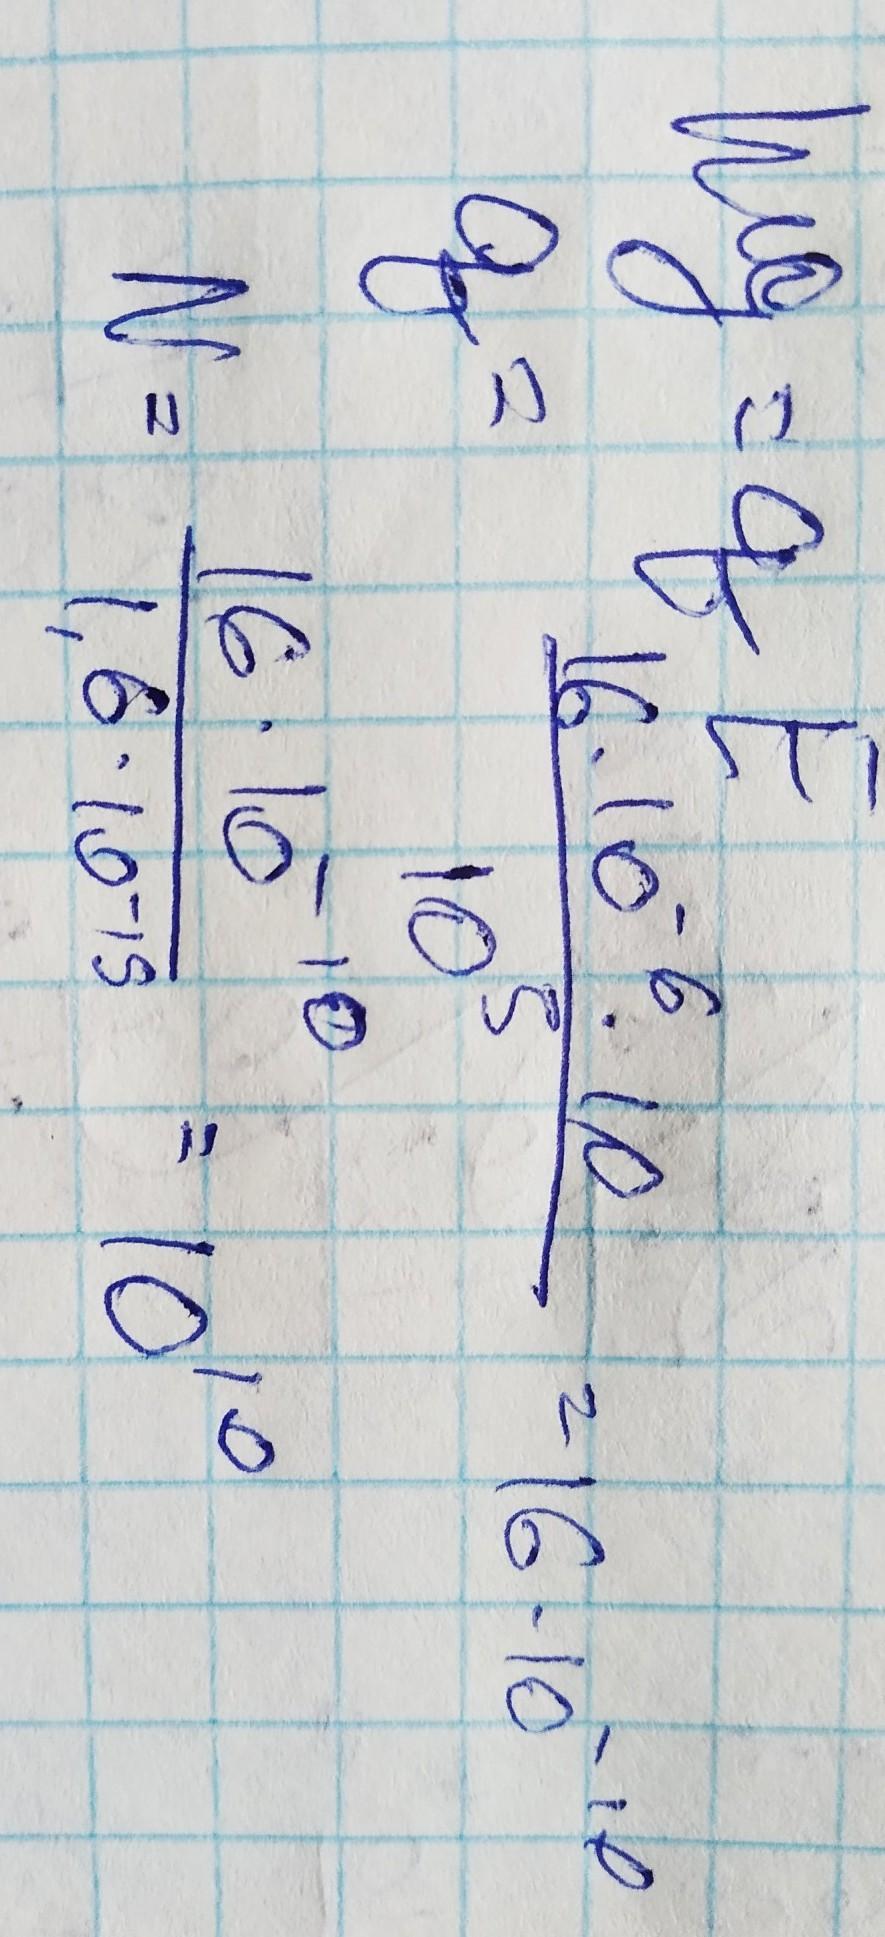 q = 16·10⁻⁶·10 / 10⁵ = 16·10⁻¹⁰
N = 16·10⁻¹⁰ / 1,6·10⁻¹⁵ = 10¹⁰